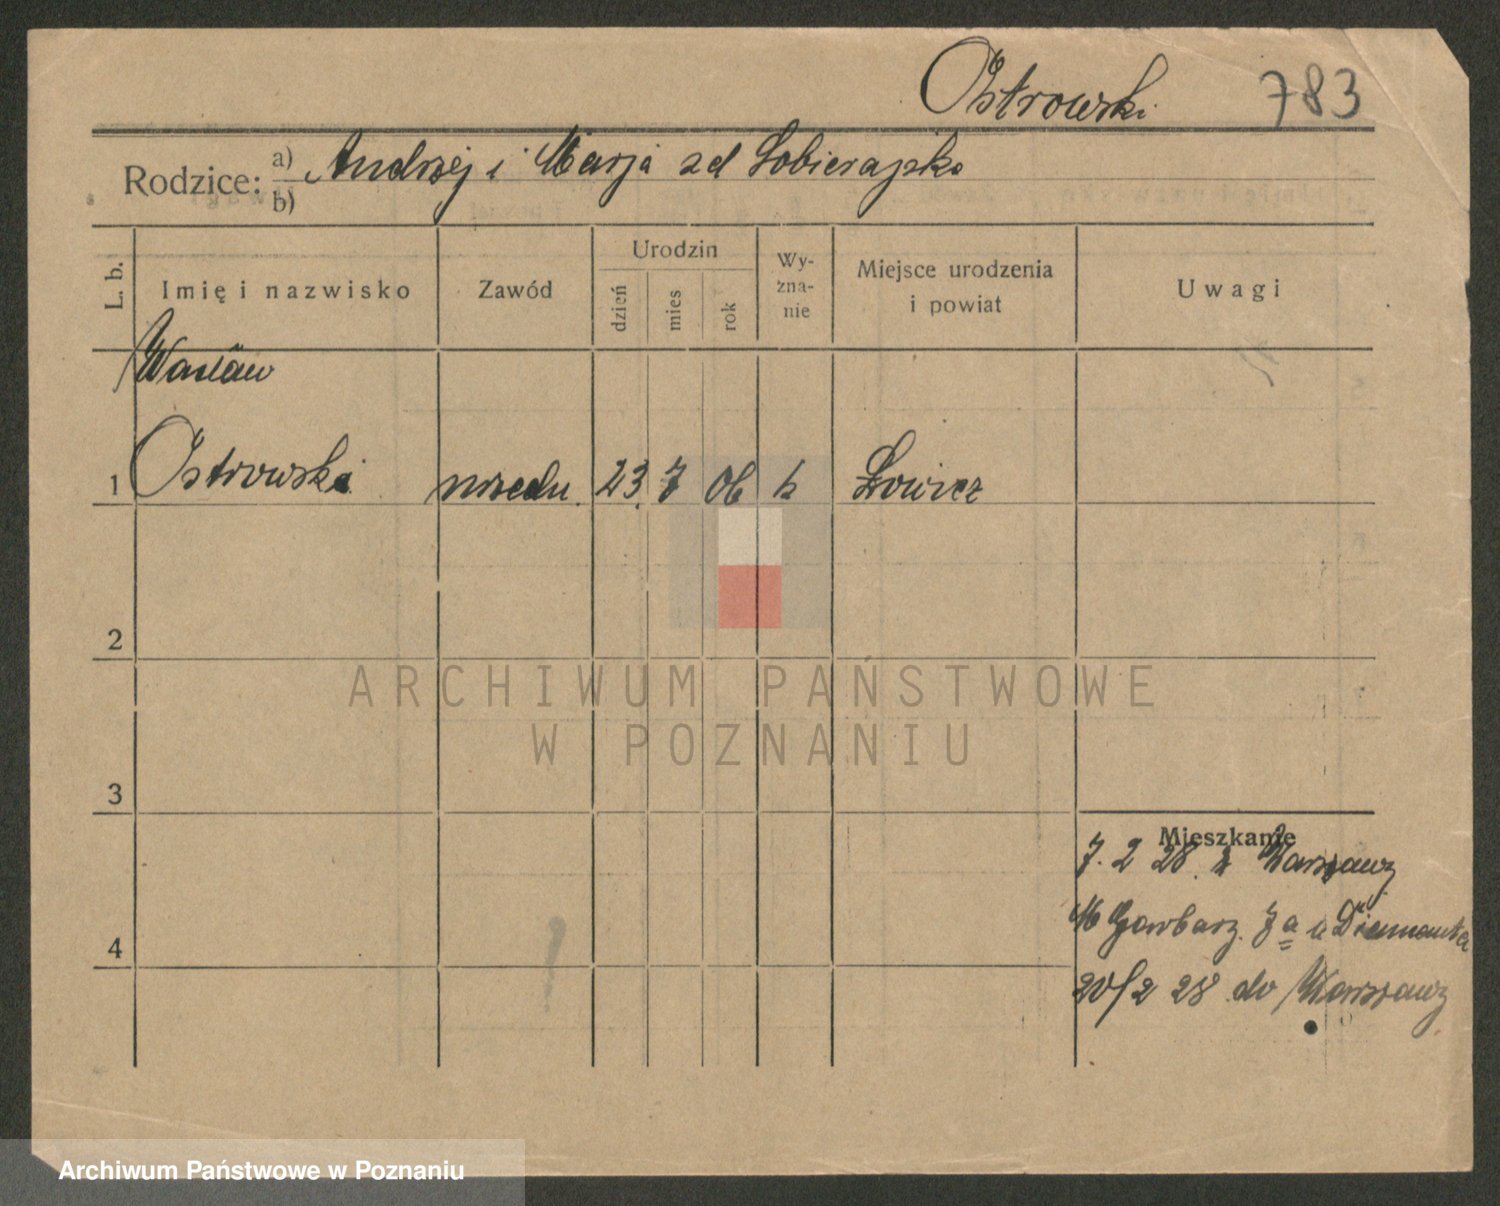 Ostrowski 783
Rodzice: a) Andrzej i Marja zd Sobierajska
b)
L. b. Imię i nazwisko Zawód Urodzin dzień mies rok Wy-zna-nie Miejsce urodzenia i powiat Uwagi
Wacław
1 Ostrowski urzędn. 23. 7 06 k Łowicz
2
3
4
Mieszkanie
7. 2 28. z Warszawy
M Garbary. 7a u Diamanta
20/2 28 do Warszawy
ARCHIWUM PAŃSTWOWE
W POZNANIU
Archiwum Państwowe w Poznaniu